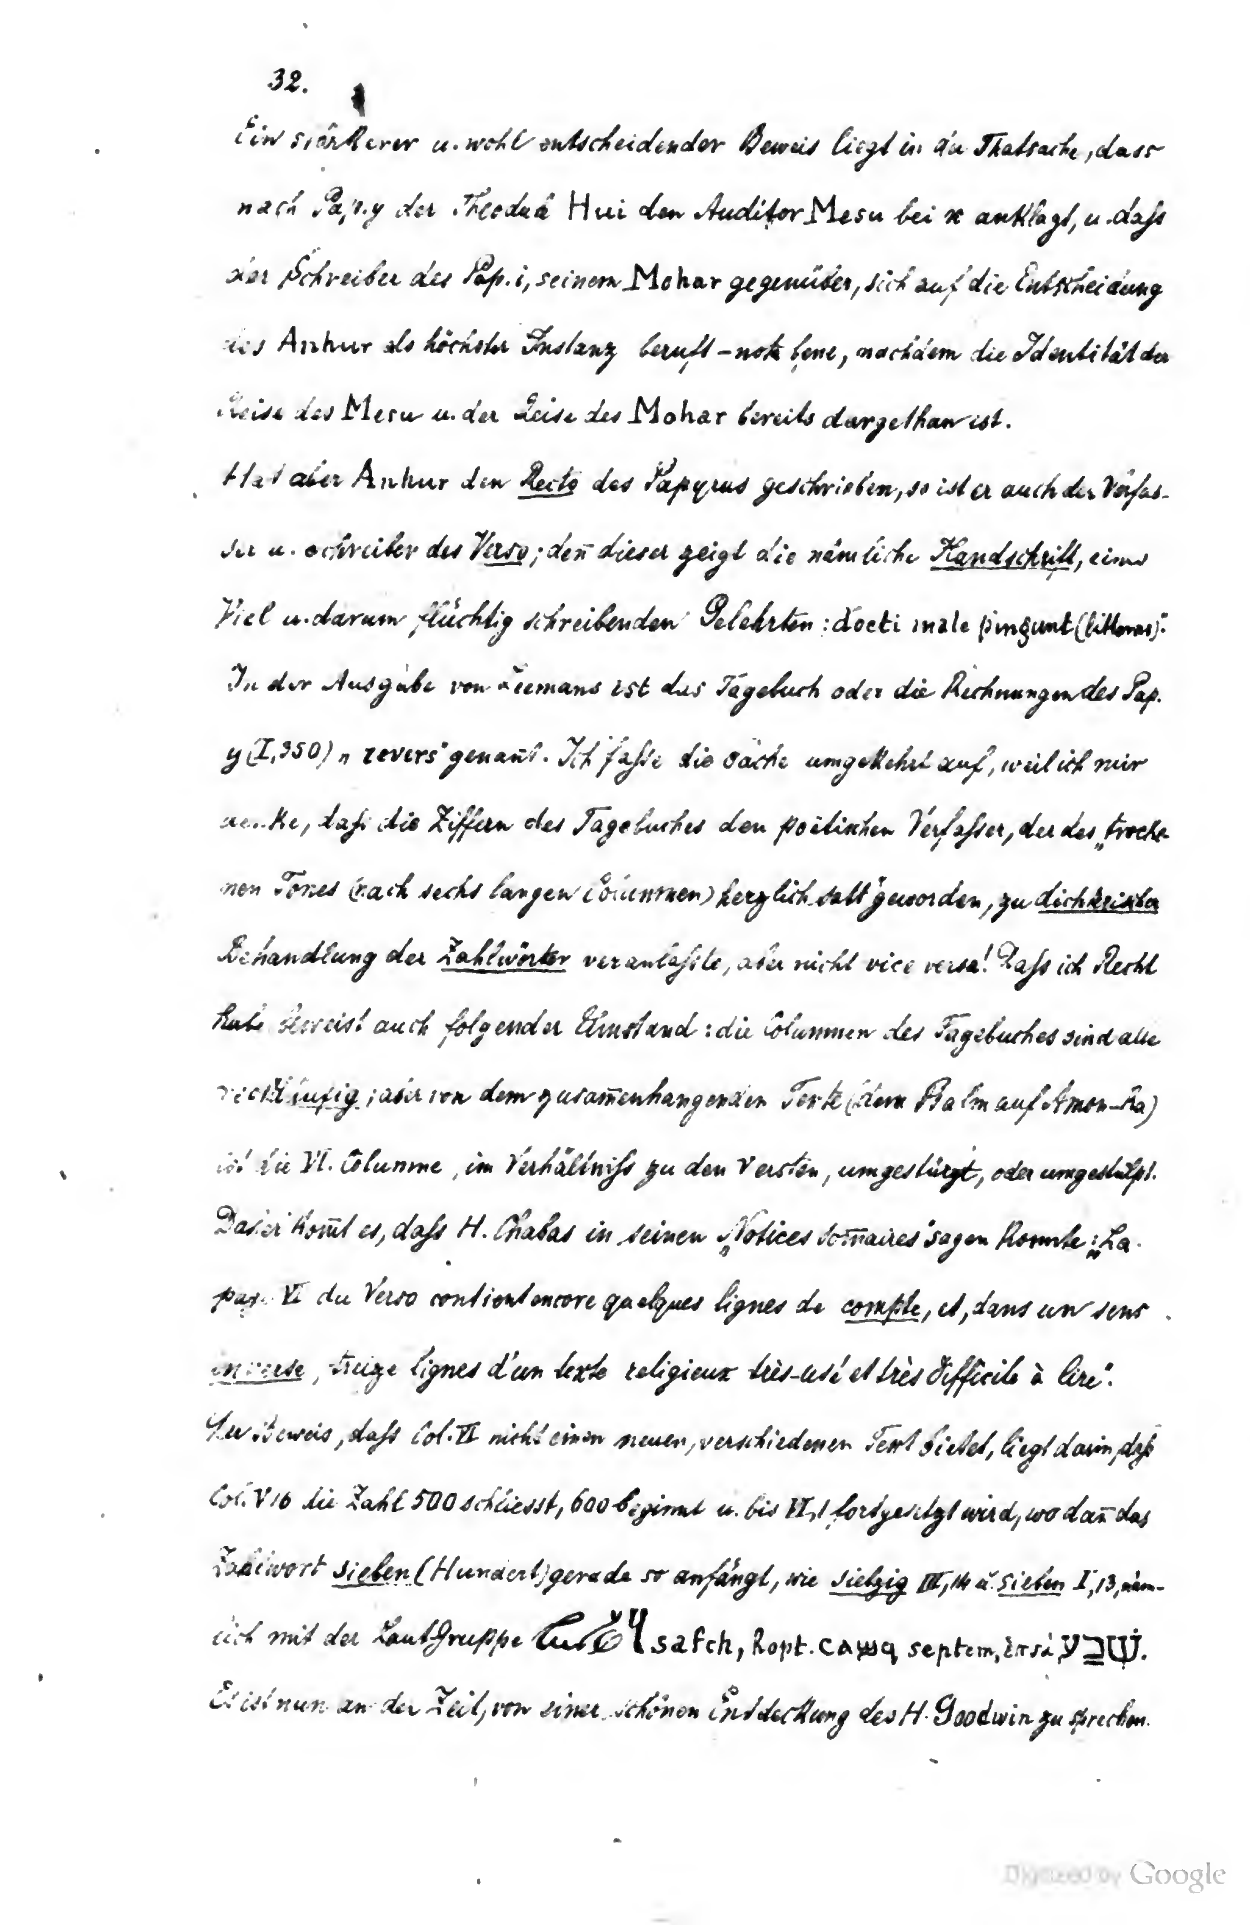 32.
Ein stärkerer u. wohl entscheidender Beweis liegt in der Thatsache, dass
nach Pap. y der Theodul Hui den Auditor Mesu bei x anklagt, u. daſs
der Schreiber des Pap. i, seinem Mohar gegenüber, sich auf die Entscheidung
des Anhur als höchster Instanz beruft – nota bene, nachdem die Identität der
Reise des Mesu u. der Reise des Mohar bereits dargethan ist.
Hat aber Anhur den Recto des Papyrus geschrieben, so ist er auch der Verfas-
ser u. Schreiber des Verso; den̄ dieser zeigt die nämliche Handschrift, eines
Viel u. darum flüchtig schreibenden Gelehrten: docti male pingunt (litteras)".
In der Ausgabe von Leemans ist das Tagebuch oder die Rechnungen des Pap.
y (I, 350) „revers" genan̄t. Ich faſse die Sache umgekehrt auf, weil ich mir
denke, daſs die Ziffern des Tagebuches den poëtischen Verfaſser, der des „trocke-
nen Tones (nach sechs langen Columnen) herzlich satt" geworden, zu dichterischer
Behandlung der Zahlwörter veranlaſste, aber nicht vice versa! Daſs ich Recht
habe beweist auch folgender Umstand: die Columnen des Tagebuches sind alle
rechtläufig; aber von dem zusam̄enhangenden Texte (dem Psalm auf Amon-Ra)
ist die VI. Columne, im Verhältniſs zu den Versten, umgestürzt, oder umgestülpt.
Daher kom̄t es, daſs H. Chabas in seinen „Notices som̄aires" sagen konnte: „La
page VI du Verso contient encore quelques lignes de compte, et, dans un sens
inverse, treize lignes d'un texte religieux très-usé et très difficile à lire".
Der Beweis, daſs Col. VI nicht einen neuen, verschiedenen Text bietet, liegt darin, daſs
Col. V 16 die Zahl 500 schliesst, 600 beginnt u. bis VI, 1 fortgesetzt wird, wo dan̄ das
Zahlwort sieben (Hundert) gerade so anfängt, wie siebzig III, 14 u. sieben I, 13, näm-
lich mit der Lautgruppe safch, kopt. ⲥⲁϣϥ septem, ἑπτά, שֶׁבַע.
Es ist nun an der Zeit, von einer schönen Entdeckung des H. Goodwin zu sprechen.
Digitized by Google